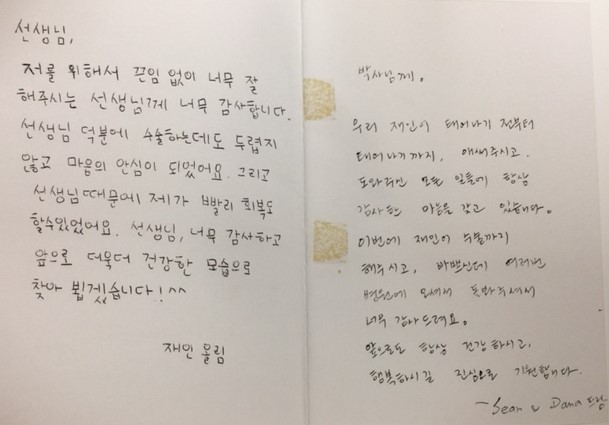 선생님,
저를 위해서 끈임 없이 너무 잘
해주시는 선생님께 너무 감사합니다.
선생님 덕분에 수술하는데도 두렵지
않고 마음의 안심이 되었어요. 그리고
선생님때문에 제가 빨리 회복도
할수있었어요. 선생님, 너무 감사하고
앞으로 더욱더 건강한 모습으로
찾아 뵙겠습니다!^^
재인 올림
박사님께.
우리 재인이 태어나기 전부터
태어나기까지, 애써주시고.
도와주신 모든 일들에 항상
감사한 마음을 갖고 있습니다.
이번에 재인이 수술까지
해주시고, 바쁘신데 여러번
병원에 오셔서 돌봐주셔서
너무 감사드려요.
앞으로도 항상 건강하시고,
행복하시길 진심으로 기원합니다.
-Sean & Dana 드림